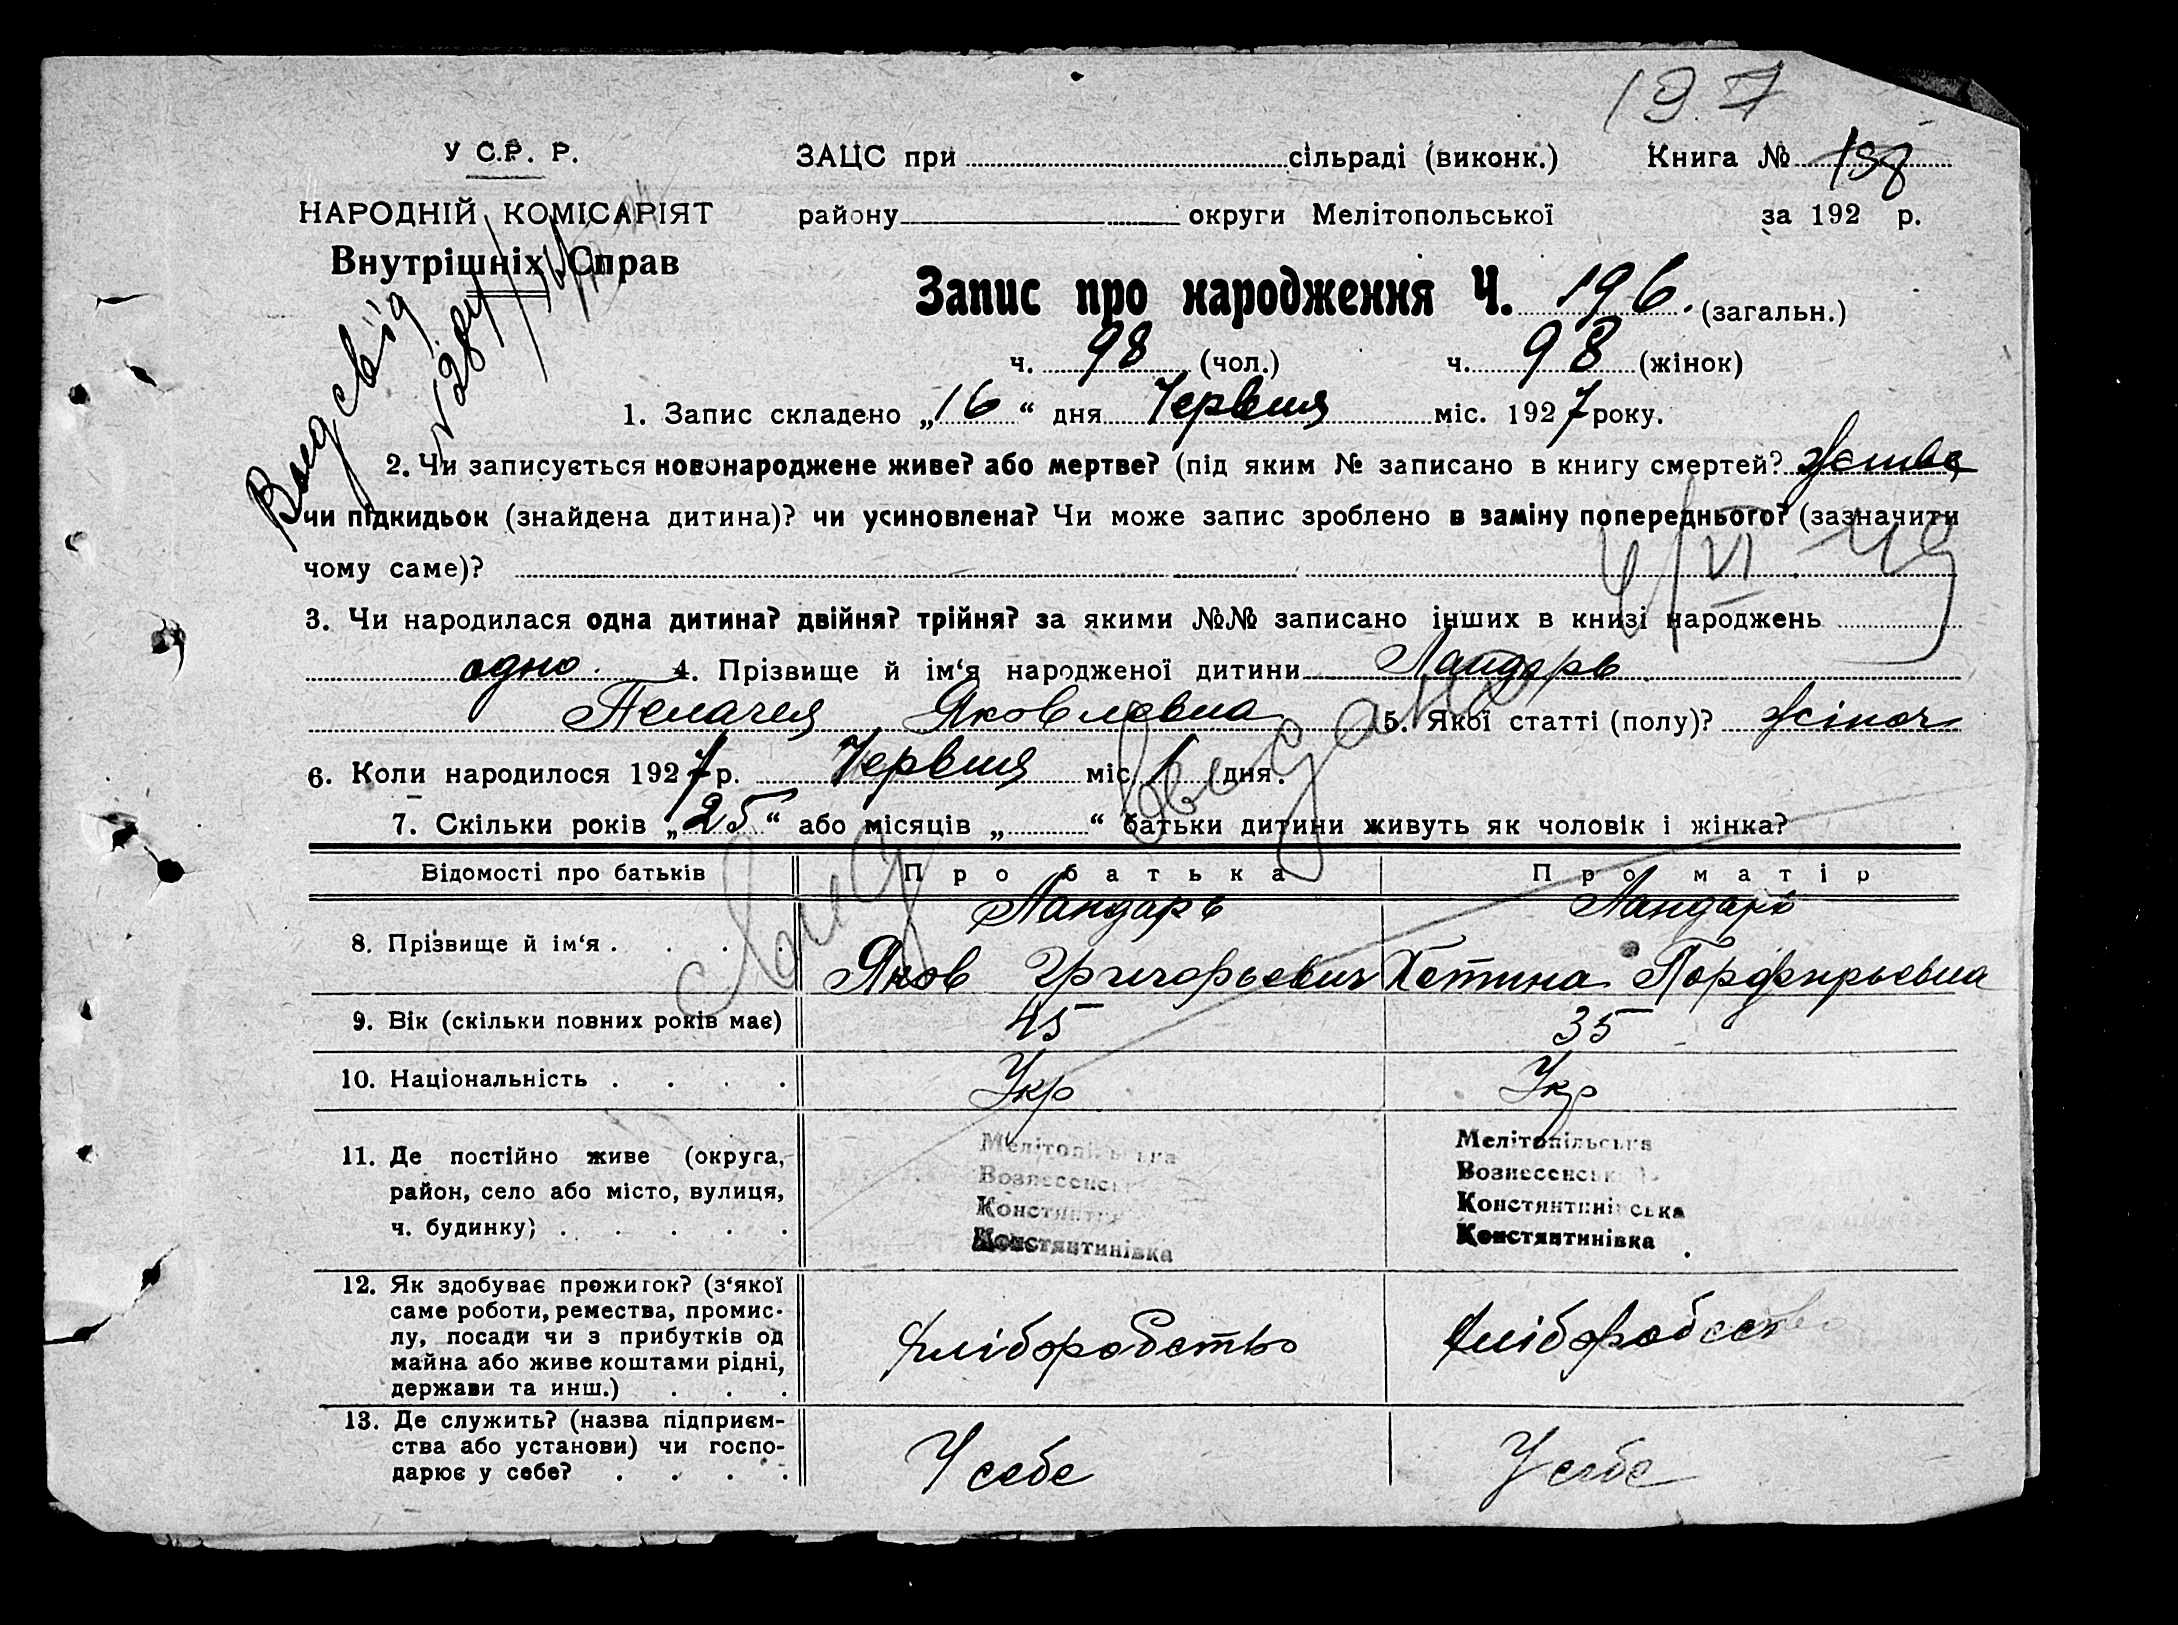 197
У С.Р. Р.
ЗАЦС при сільраді (виконк.) Книга № 198
НАРОДНІЙ КОМІСАРІЯТ
району округи Мелітопольської за 192 р.
Внутрішніх Справ
Запис про народження Ч. 196. (загальн.)
ч. 98 (чол.) ч. 98 (жінок)
1. Запис складено „16“ дня Червня міс. 1927 року.
2. Чи записується новонароджене живе? або мертве? (під яким № записано в книгу смертей? живе
чи підкидьок (знайдена дитина)? чи усиновлена? Чи може запис зроблено в заміну попереднього? (зазначити
чому саме)?
4/VI 49
3. Чи народилася одна дитина? двійня? трійня? за якими №№ записано інших в книзі народжень
одно. 4. Прізвище й ім‘я народженої дитини Ландарь
Пелагея Яковлевна 5. Якої статті (полу)? жіноч
6. Коли народилося 1927 р. Червня міс. 1 дня.
7. Скільки років „25“ або місяців „ “ батьки дитини живуть як чоловік і жінка?
Відомості про батьків Про батька Про матір
Ландарь Ландарь
8. Прізвище й ім‘я . . . .
Яков Григорьевич Хотина Порфирьевна
9. Вік (скільки повних років має) 45 35
10. Національність . . . . Укр Укр
11. Де постійно живе (округа, Мелітопільська Мелітопільська
район, село або місто, вулиця, Вознесенськ Вознесенськ
ч. будинку) . . . . . Констянтин Констянтинівська
Констянтинівка Констянтинівка
12. Як здобуває прожиток? (з‘якої
саме роботи, ремества, промис-
лу, посади чи з прибутків од
майна або живе коштами рідні,
держави та инш.) . . .
хліборобство хліборобство
13. Де служить? (назва підприєм-
ства або установи) чи госпо-
дарює у себе? . . . .
У себе У себе